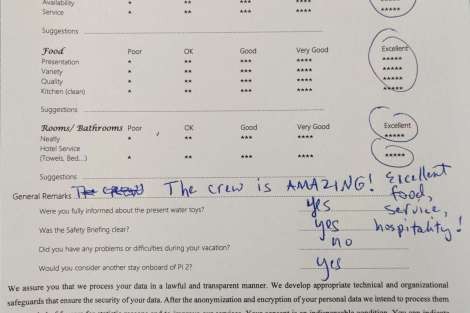 Availability * ** *** **** *****
Service * ** *** **** *****
Suggestions
Food Poor OK Good Very Good Excellent
Presentation * ** *** **** *****
Variety * ** *** **** *****
Quality * ** *** **** *****
Kitchen (clean) * ** *** **** *****
Suggestions
Rooms/ Bathrooms Poor OK Good Very Good Excellent
Neatly * ** *** **** *****
Hotel Service
(Towels, Bed...) * ** *** **** *****
Suggestions
General Remarks The crew is AMAZING! Excellent
food,
Were you fully informed about the present water toys? yes service,
Was the Safety Briefing clear? yes hospitality!
Did you have any problems or difficulties during your vacation? no
Would you consider another stay onboard of PI 2? yes
We assure you that we process your data in a lawful and transparent manner. We develop appropriate technical and organizational
safeguards that ensure the security of your data. After the anonymization and encryption of your personal data we intend to process them